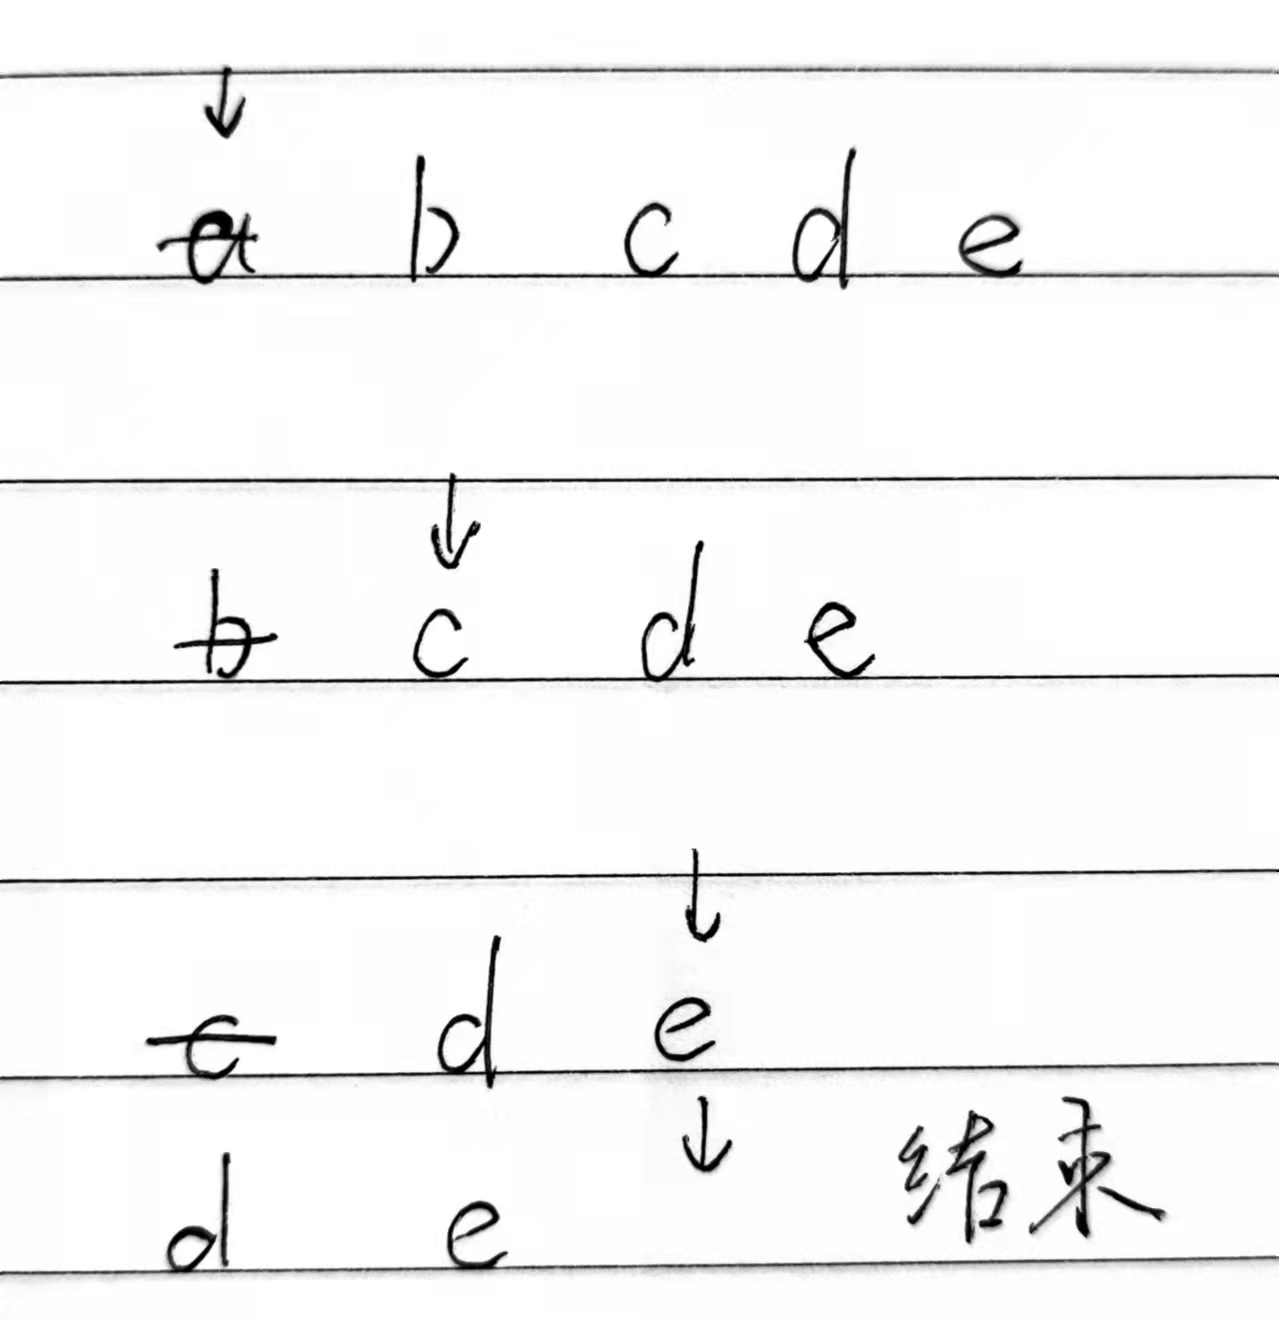 ↓
a b c d e
↓
b c d e
↓
c d e
↓
d e 结束